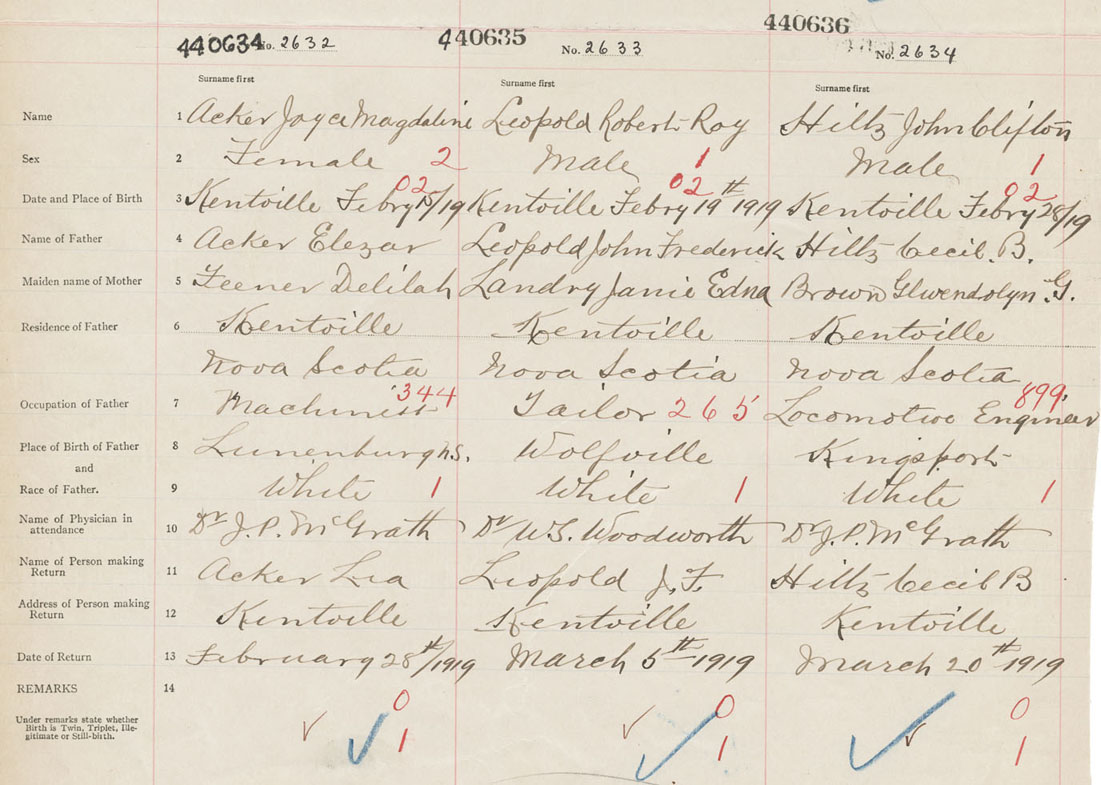 440634 No. 2632 440635 No. 2633 440636 No. 2634
Surname first Surname first Surname first
Name 1 Acker Joyce Magdaline Leopold Robert Roy Hiltz John Clifton
Sex 2 Female 2 Male 1 Male 1
02 02 02
Date and Place of Birth 3 Kentville Febry 15/19 Kentville Febry 19th 1919 Kentville Febry 28/19
Name of Father 4 Acker Elezar Leopold John Frederick Hiltz Cecil. B.
Maiden name of Mother 5 Feener Delilah Landry Janie Edna Brown Glwendolyn. G.
Residence of Father 6 Kentville Kentville Kentville
Nova Scotia Nova Scotia Nova Scotia
Occupation of Father 7 Machinist 344 Tailor 265 Locomotive Engineer 899
Place of Birth of Father 8 Lunenburg N.S. Wolfville Kingsport
and
Race of Father. 9 White 1 White 1 White 1
Name of Physician in
attendance 10 Dr J. P. McGrath Dr W. S. Woodworth Dr J. P. McGrath
Name of Person making
Return 11 Acker Lia Leopold J. F. Hiltz Cecil B
Address of Person making
Return 12 Kentville Kentville Kentville
Date of Return 13 February 28th/1919 March 5th 1919 March 20th 1919
REMARKS 14
0 0 0
Under remarks state whether
Birth is Twin, Triplet, Ille-
gitimate or Still-birth.
1 1 1